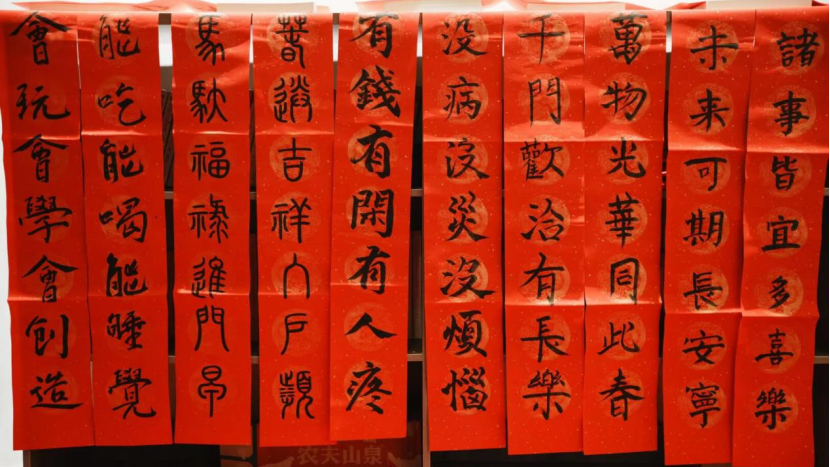 諸事皆宜多喜樂
未来可期長安寧
萬物光華同此春
千門歡洽有長樂
没病沒災沒煩惱
有錢有閑有人疼
春送吉祥入戶頻
馬馱福祿進門早
能吃能喝能睡覺
會玩會學會創造
农夫山泉